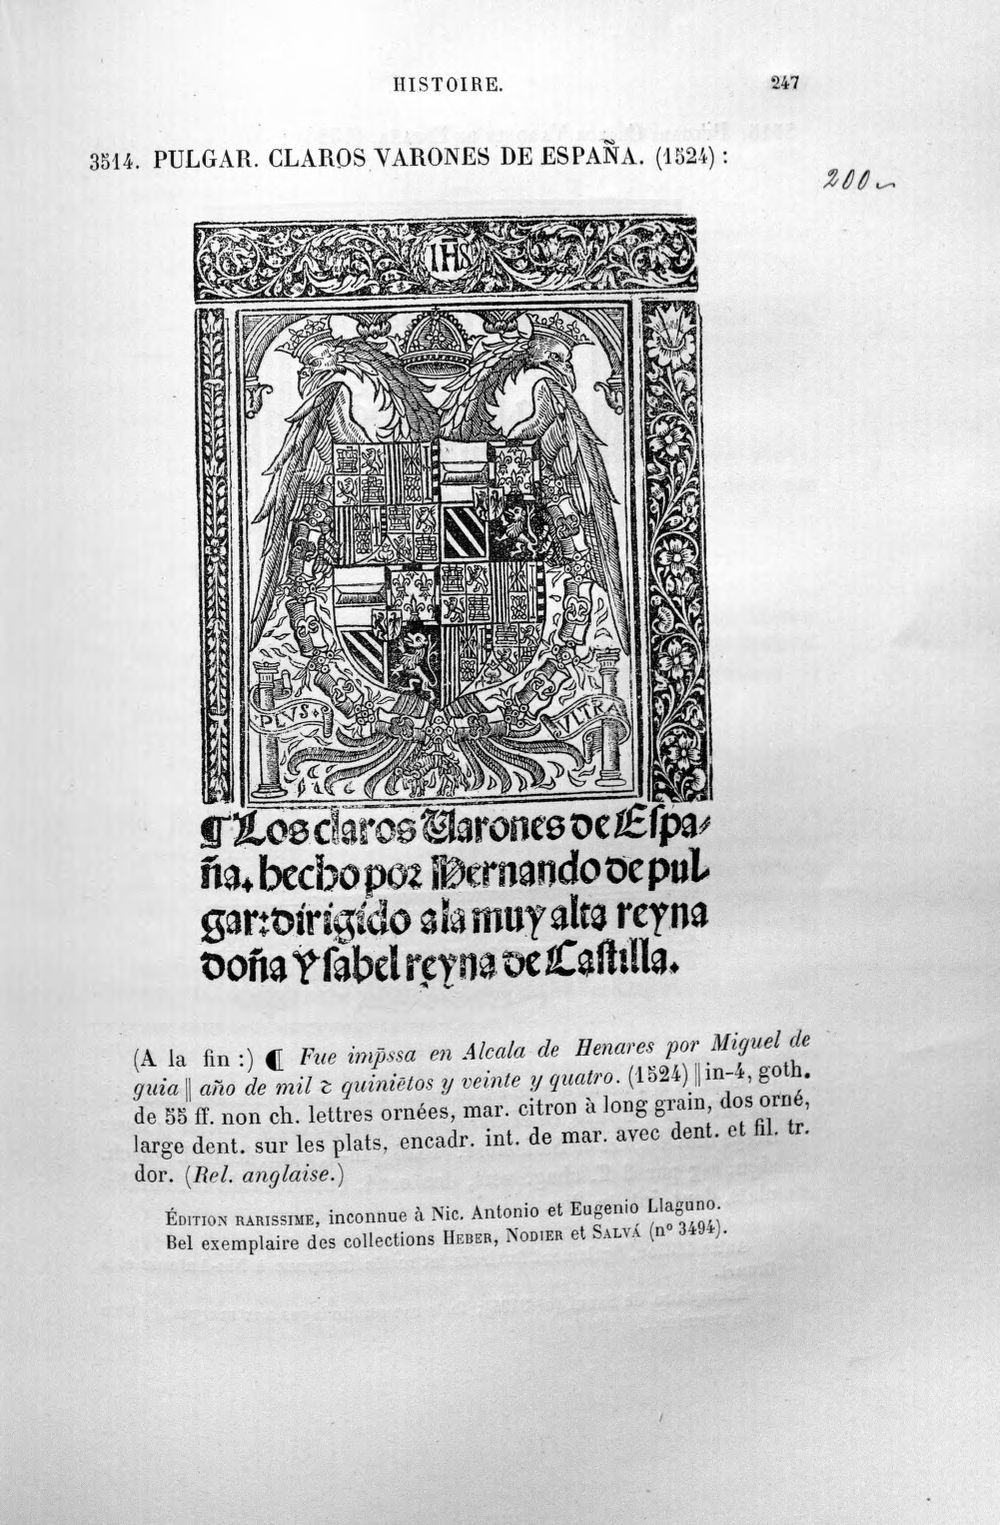 HISTOIRE. 247
3514. PULGAR. CLAROS VARONES DE ESPAÑA. (1524) :
200
IHS
PLVS VLTRA
¶ Los claros Varones de Espa-
ña. hecho por Hernando de pul
gar: dirigido a la muy alta reyna
doña Ysabel reyna de Castilla.
(A la fin :) ¶ Fue imp̄ssa en Alcala de Henares por Miguel de
guia || año de mil ⁊ quiniētos y veinte y quatro. (1524) || in-4, goth.
de 55 ff. non ch. lettres ornées, mar. citron à long grain, dos orné,
large dent. sur les plats, encadr. int. de mar. avec dent. et fil. tr.
dor. (Rel. anglaise.)
ÉDITION RARISSIME, inconnue à Nic. Antonio et Eugenio Llaguno.
Bel exemplaire des collections HEBER, NODIER et SALVÁ (nº 3494).